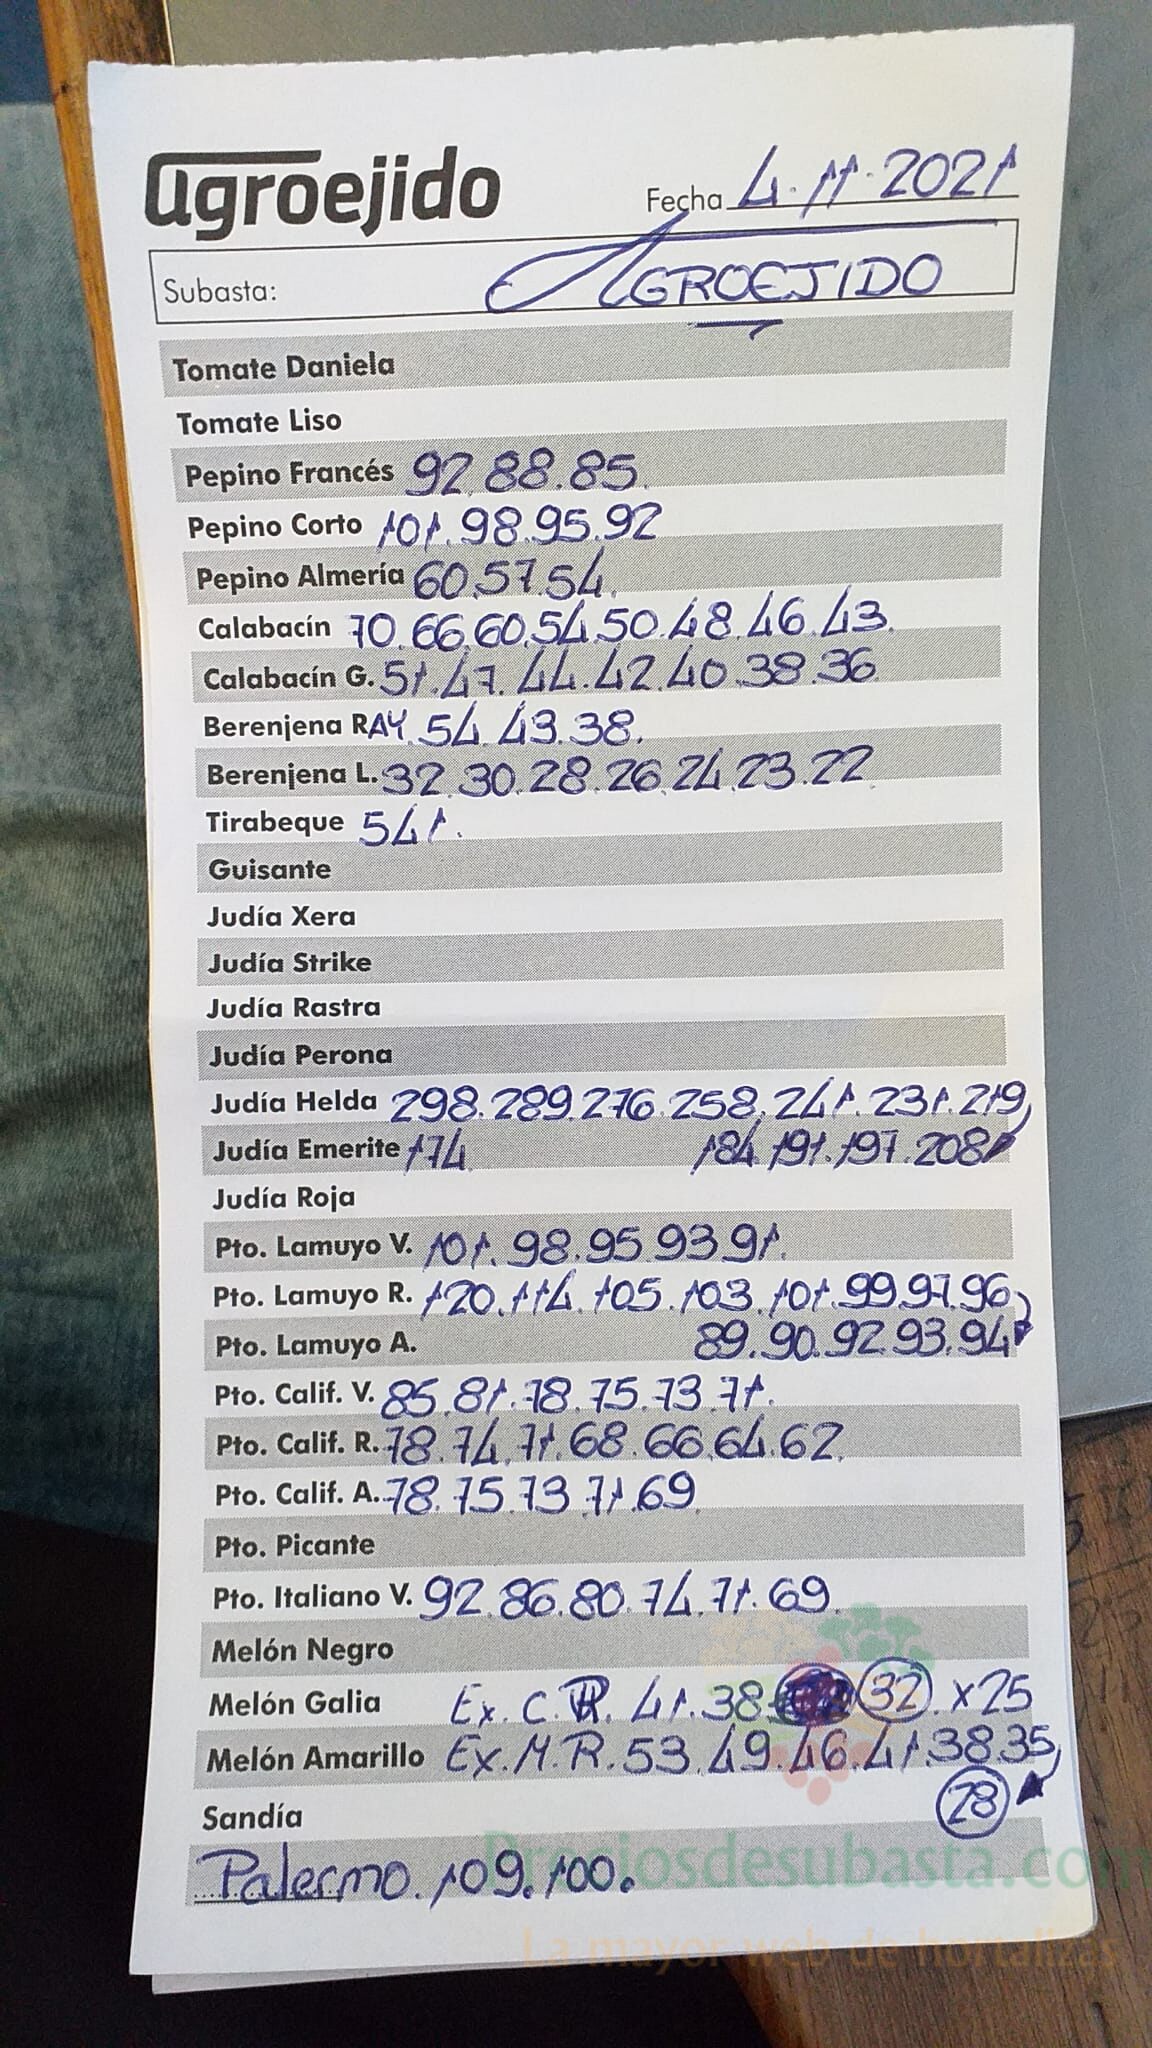 agroejido
Fecha 4.11.2021
Subasta: AGROEJIDO
Tomate Daniela
Tomate Liso
Pepino Francés 92.88.85.
Pepino Corto 101.98.95.92
Pepino Almería 60.57.54.
Calabacín 70.66.60.54.50.48.46.43.
Calabacín G. 51.47.44.42.40.38.36.
Berenjena RAY. 54.43.38.
Berenjena L. 32.30.28.26.24.23.22.
Tirabeque 541.
Guisante
Judía Xera
Judía Strike
Judía Rastra
Judía Perona
Judía Helda 298.289.276.258.241.231.219
Judía Emerite 174 184.191.197.208
Judía Roja
Pto. Lamuyo V. 101.98.95.93.91.
Pto. Lamuyo R. 120.114.105.103.101.99.97.96
Pto. Lamuyo A. 89.90.92.93.94
Pto. Calif. V. 85.81.78.75.73.71.
Pto. Calif. R. 78.74.71.68.66.64.62.
Pto. Calif. A. 78.75.73.71.69.
Pto. Picante
Pto. Italiano V. 92.86.80.74.71.69.
Melón Negro
Melón Galia Ex. C. R. 41.38. 32. x25
Melón Amarillo Ex. M. R. 53.49.46.41.38.35
28
Sandía
Palermo. 109.100.
Preciosdesubasta.com
La mayor web de hortalizas